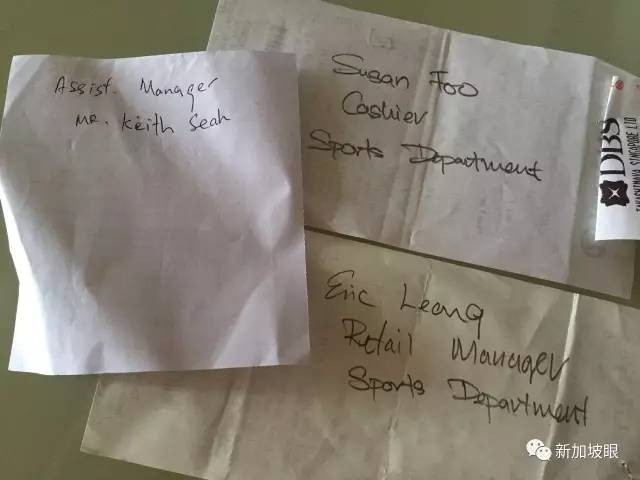 Assist. Manager
MR. Keith Seah
Susan Foo
Cashier
Sports Department
DBS
TAKASHIMAYA SINGAPORE LTD
Eric Leong
Retail Manager
Sports Department
新加坡眼